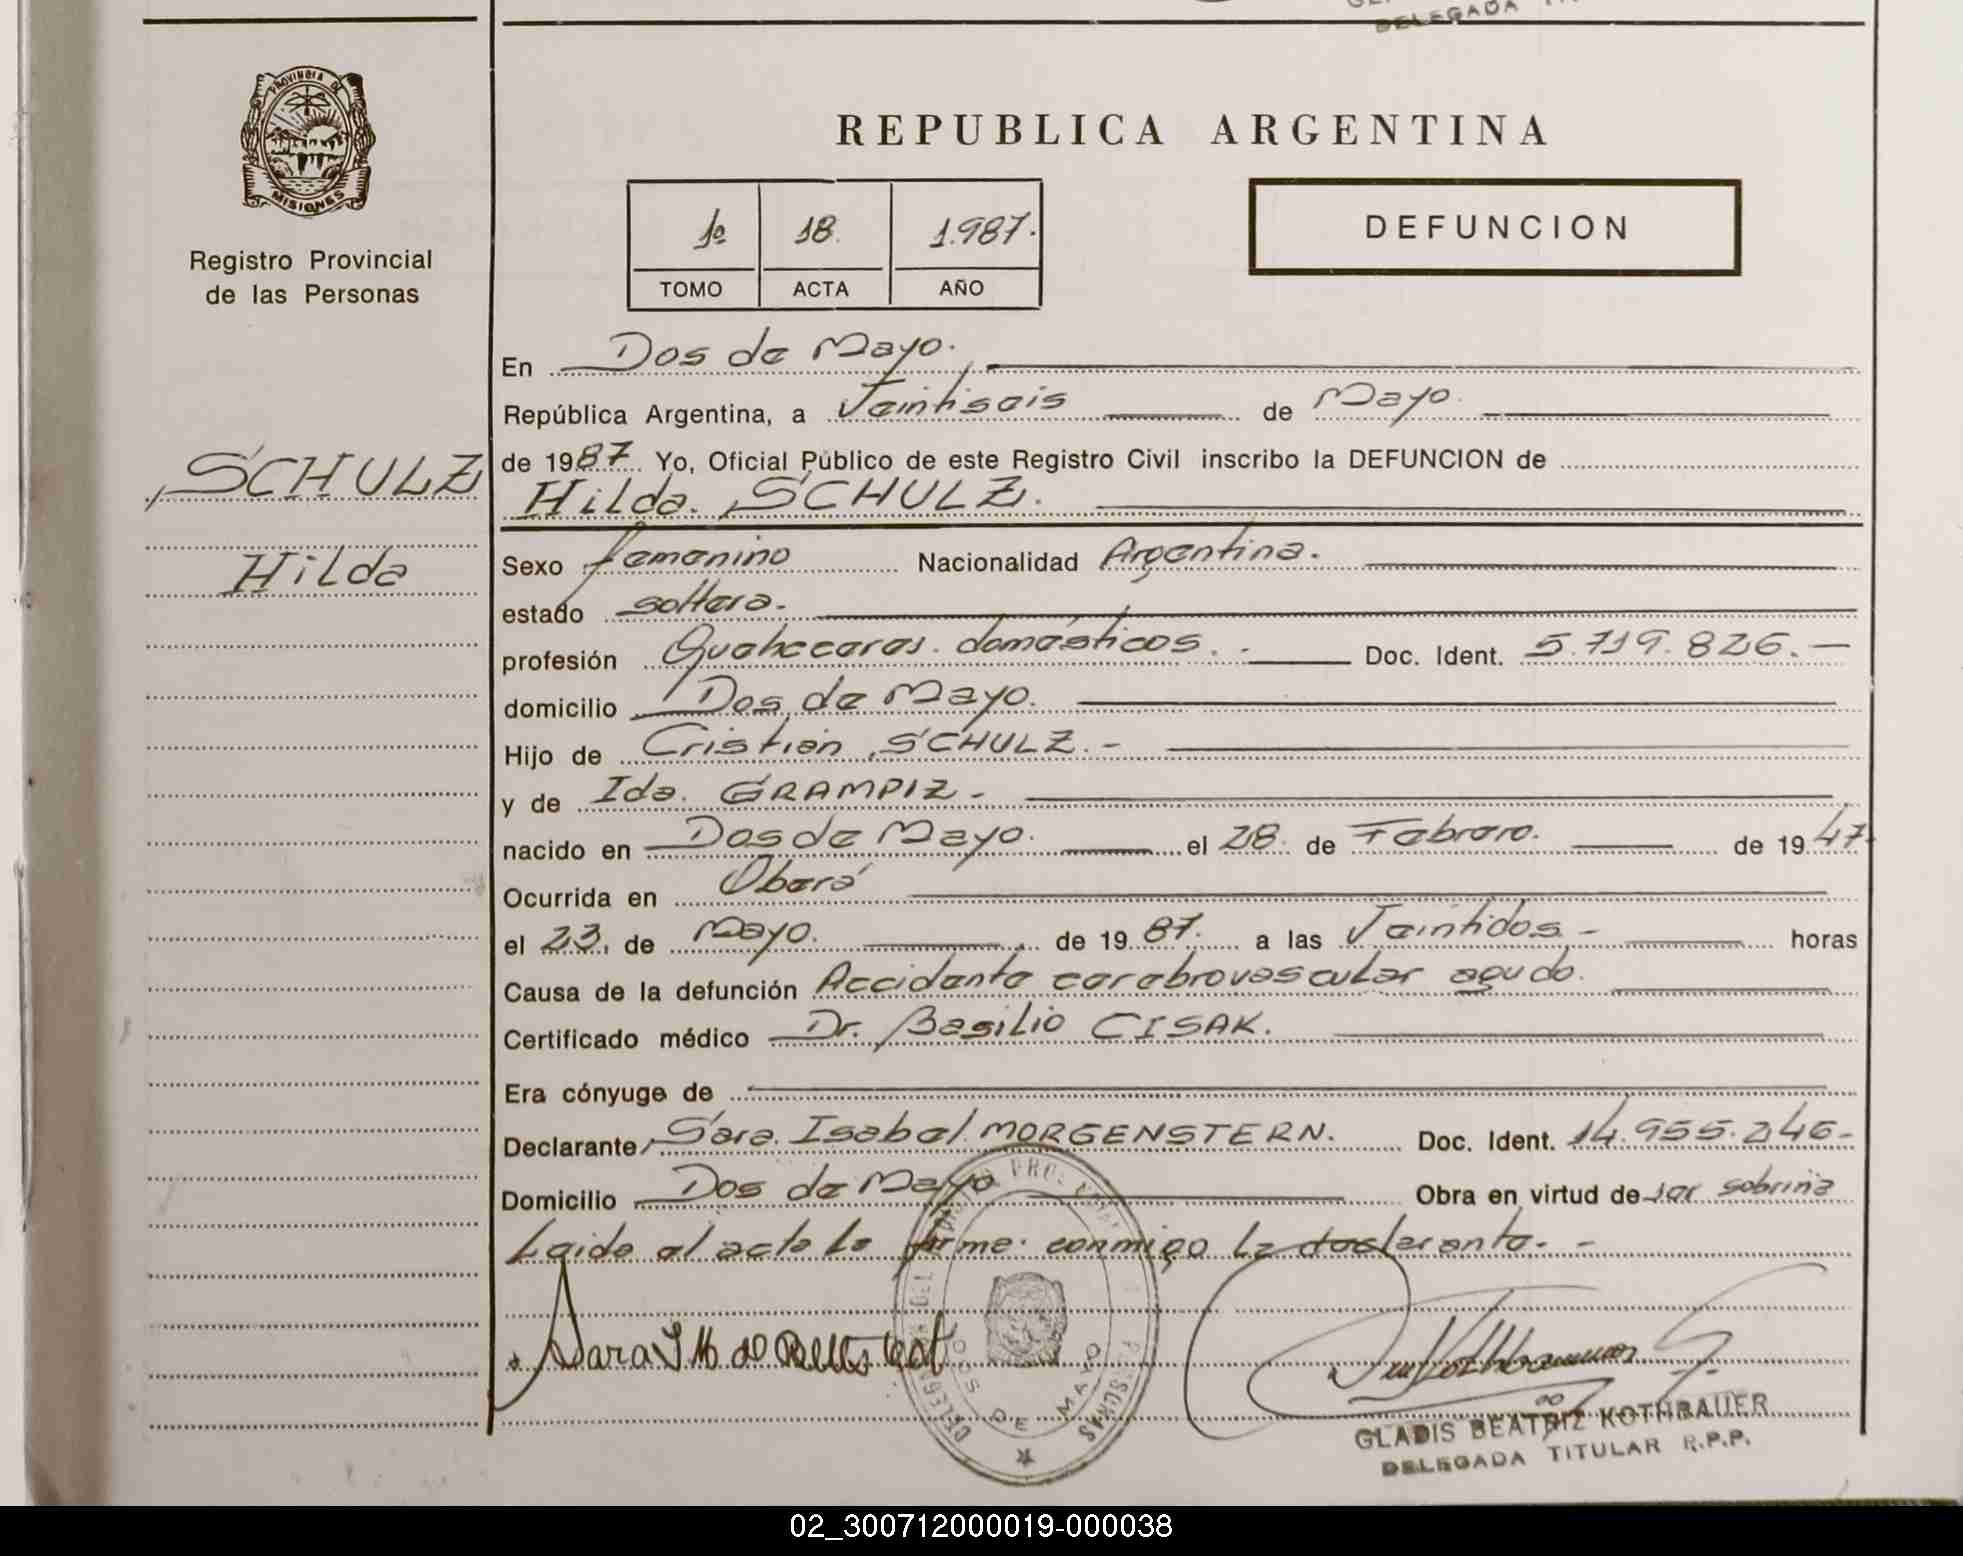 DELEGADA
PROVINCIA DE
MISIONES
Registro Provincial
de las Personas
SCHULZ
Hilda
REPUBLICA ARGENTINA
1º 18. 1.987.
TOMO ACTA AÑO
DEFUNCION
En Dos de Mayo.
República Argentina, a Veintiseis de Mayo.
de 1987. Yo, Oficial Público de este Registro Civil inscribo la DEFUNCION de
Hilda. SCHULZ.
Sexo femenino Nacionalidad Argentina.
estado soltera.
profesión Quehaceres. domésticos. Doc. Ident. 5.719.826.-
domicilio Dos de Mayo.
Hijo de Cristian SCHULZ.-
y de Ida. GRAMPIZ-
nacido en Dos de Mayo. el 28. de Febrero. de 1947.
Ocurrida en Oberá
el 23, de Mayo. de 1987. a las Veintidos- horas
Causa de la defunción Accidente cerebrovascular agudo.
Certificado médico Dr. Basilio CISAK.
Era cónyuge de
Declarante Sara. Isabel. MORGENSTERN. Doc. Ident. 14.955.246-
Domicilio Dos de Mayo Obra en virtud de ser sobrina
Leida el acta la firma conmigo la declarante.-
Sara I M de
DOS DE MAYO
GLADIS BEATRIZ KOTHBAUER
DELEGADA TITULAR R.P.P.
02_300712000019-000038